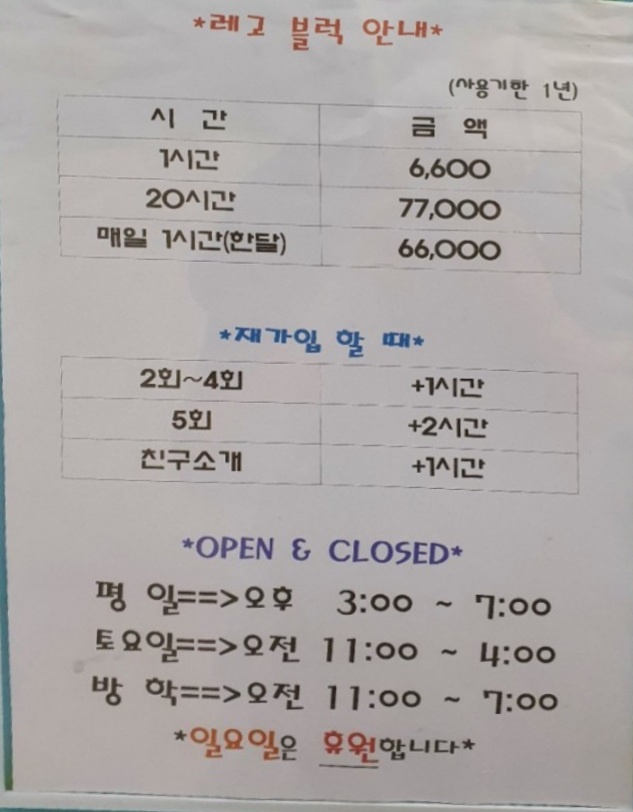 *레고 블럭 안내*
(사용기한 1년)
시 간 금 액
1시간 6,600
20시간 77,000
매일 1시간(한달) 66,000
*재가입 할 때*
2회~4회 +1시간
5회 +2시간
친구소개 +1시간
*OPEN & CLOSED*
평 일==>오후 3:00 ~ 7:00
토요일==>오전 11:00 ~ 4:00
방 학==>오전 11:00 ~ 7:00
*일요일은 휴원합니다*